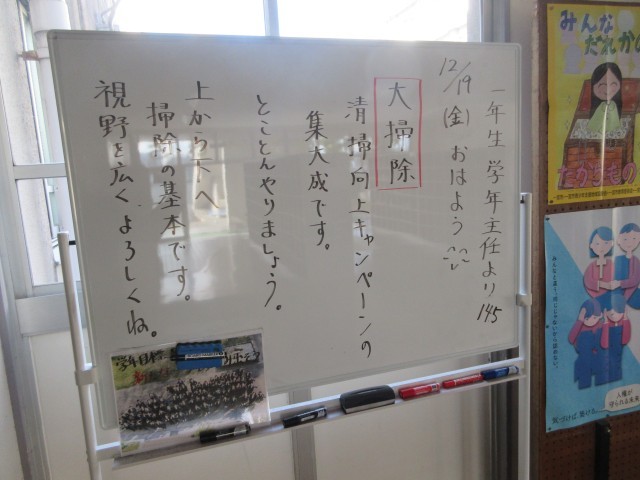 一年生 学年主任より 145
12/19(金) おはよう
大掃除
清掃向上キャンペーンの
集大成です。
とことんやりましょう。
上から下へ
掃除の基本です。
視野を広く、よろしくね。
みんな
だれかの
たからもの